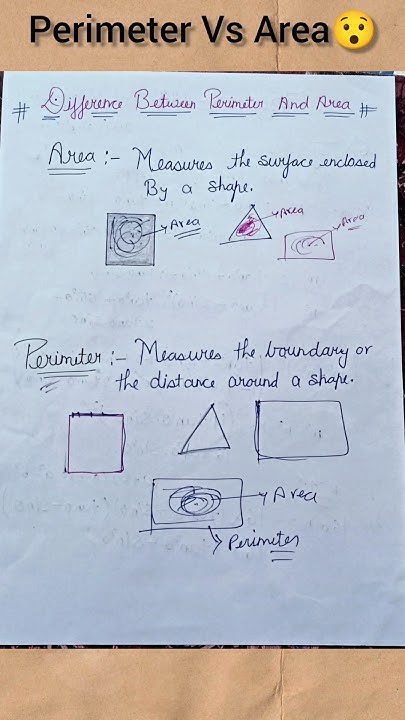 Perimeter Vs Area😯
# Difference Between Perimeter And Area #
Area :- Measures the surface enclosed
By a shape.
Area
Area
Area
Perimeter :- Measures the boundary or
the distance around a shape.
Area
Perimeter